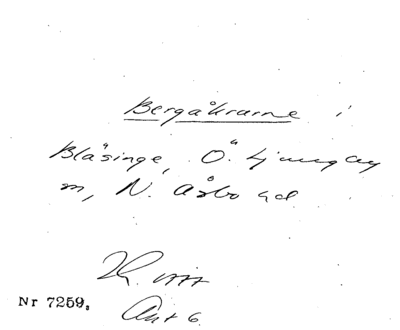 Bergåkrarne i
Blåsinge, Ö. Ljungby
m, N. Åsbo hd
Nr 7259.